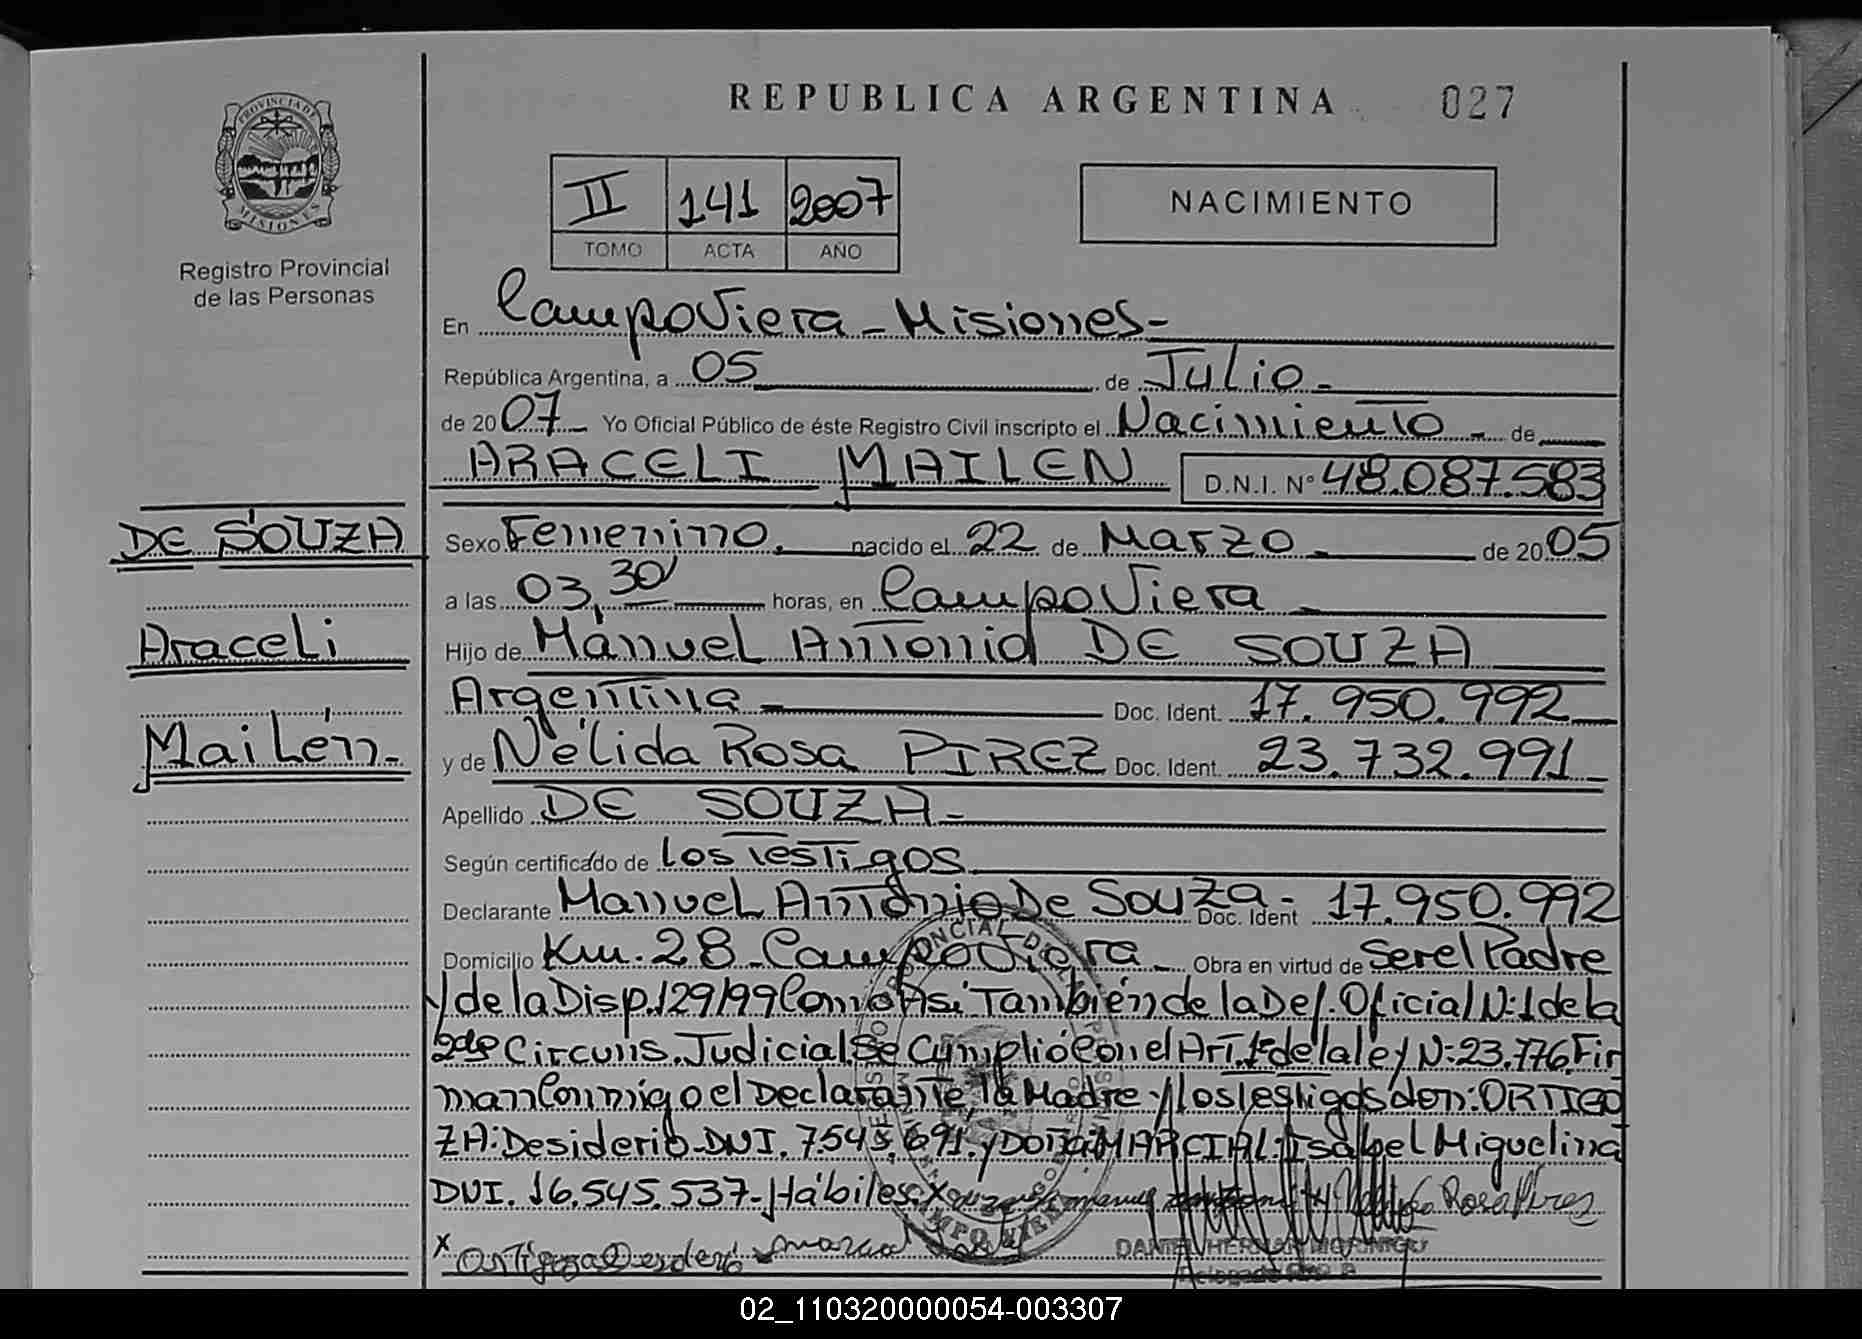 REPUBLICA ARGENTINA
027
PROVINCIA DE
MISIONES
Registro Provincial
de las Personas
II 141 2007
TOMO ACTA AÑO
NACIMIENTO
En CampoViera - Misiones-
República Argentina, a 05 de Julio -
de 2007 Yo Oficial Público de éste Registro Civil inscripto el Nacimiento - de
ARACELI MAILEN D.N.I. N° 48.087.583
DE SOUZA
Araceli
Mailén.-
Sexo Femenino. nacido el 22 de Marzo - de 2005
a las 03,30 horas, en CampoViera -
Hijo de Manuel Antonio DE SOUZA
Argentina - Doc. Ident. 17.950.992
y de Nélida Rosa PIREZ Doc. Ident. 23.732.991
Apellido DE SOUZA -
Según certificado de los Testigos
Declarante Manuel Antonio De Souza - Doc. Ident 17.950.992
Domicilio Km. 28 - CampoViera - Obra en virtud de Ser el Padre
y de la Disp. 129/99 Como Asi También de la Def. Oficial N:1 de la
2da Circuns. Judicial Se Cumplió Con el Art. 1º de la ley N: 23.776. Fir
man Conmigo el Declarante, la Madre y los Testigos don: ORTIGO
ZA: Desiderio - DNI. 7.545.691. y Doña MARCIAL: Isabel Miguelina
DNI. 16.545.537 - Hábiles. x Rosa Pires
x Ortigoza Desiderio
DANIEL HERNAN MORINIGO
02_110320000054-003307